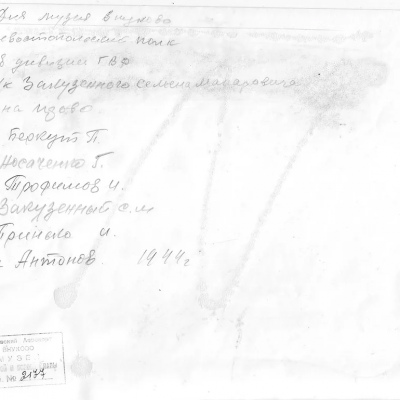 Для музея Внуково
Севастопольский полк
дивизии ГВФ
Закузенного Семена Макаровича
на
Беркут П.
Носаченко Г.
Трофимов И.
Закузенный С.М
Принько И.
Антонов. 1944г
ВНУКОВО
МУЗЕЙ
№ 2177